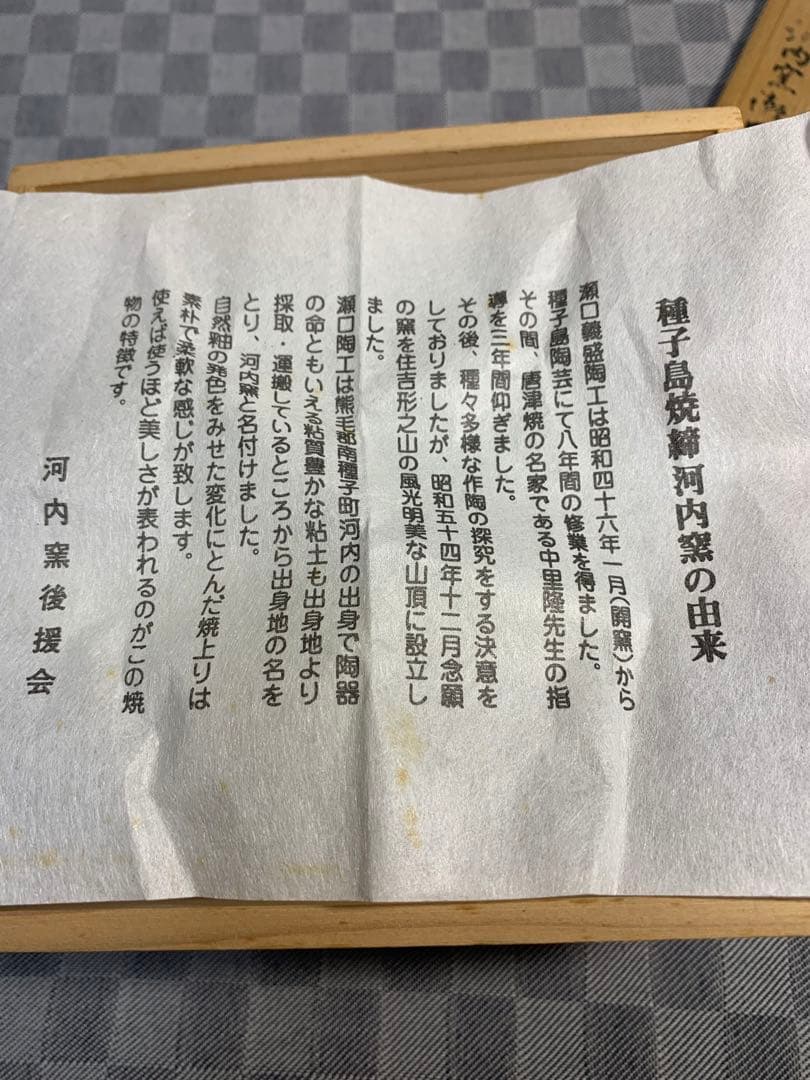 種子島焼締河内窯の由来
瀬口義盛陶工は昭和四十六年一月(開窯)から
種子島陶芸にて八年間の修業を得ました。
その間、唐津焼の名家である中里隆先生の指
導を三年間仰ぎました。
その後、種々多様な作陶の探究をする決意を
しておりましたが、昭和五十四年十二月念願
の窯を住吉形之山の風光明美な山頂に設立し
ました。
瀬口陶工は熊毛郡南種子町河内の出身で陶器
の命ともいえる粘質豊かな粘土も出身地より
採取・運搬しているところから出身地の名を
とり、河内窯と名付けました。
自然釉の発色をみせた変化にとんだ焼上りは
素朴で柔軟な感じが致します。
使えば使うほど美しさが表われるのがこの焼
物の特徴です。
河内窯後援会
内窯